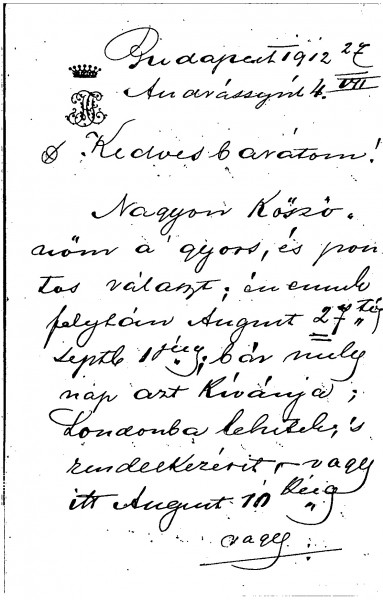 Budapest 1912 27/VII
Andrássyút 4.
Kedves barátom!
Nagyon Köszö-
nöm a gyors, és pon
tos választ; én ennek
folytán August 27 től
Septb 1 séig, bár mely
nap azt Kívánja;
Londonba lehetek, és
rendelkezésit, vagy
itt August 10 kéig
vagy